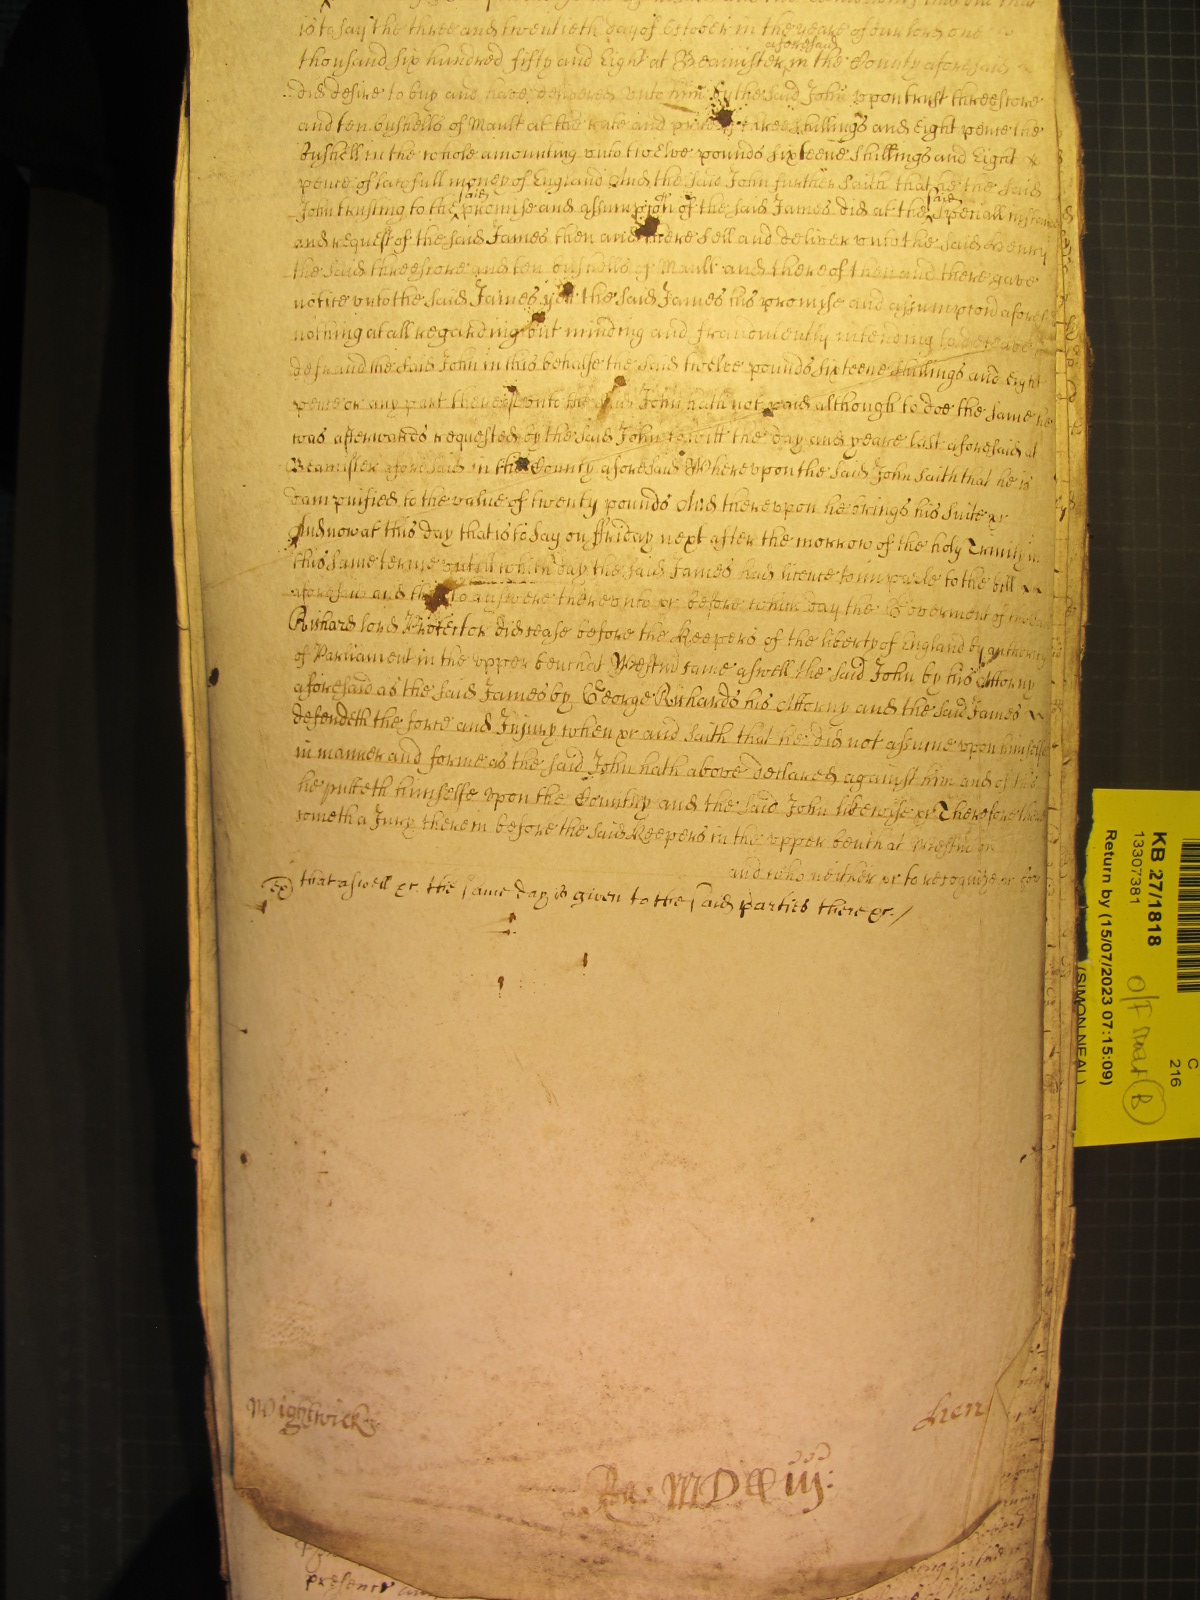 is to say the three and twentieth day of October in the yeare of our lord one
aforesaid
thousand six hundred fifty and Eight at Beamister in the County aforesaid
did desire to buy and have delivered unto him by the said John upon trust threescore
and ten bushells of Mault at the rate and price of three shillings and eight pence the
Bushell in the whole amounting unto twelve pounds sixteene shillings and Eight
pence of lawfull money of England And the said John further saith that he the said
said said
John trusting to the promise and assumption of the said James did at the speciall instance
and request of the said James then and there sell and deliver unto the said Henry
the said threescore and ten bushells of Mault and thereof then and there gave
notice unto the said James yett the said James his promise and assumption aforesd
nothing at all regarding but minding and fraudulently intending to deceave
defraud the said John in this behalfe the said twelve pounds sixteene shillings and eight
pence or any part thereof unto the said John hath not paid although to doe the same he
was afterwards requested by the said John to witt the day and yeare last aforesaid at
Beamister aforesaid in the County aforesaid Whereupon the said John saith that he is
dampnified to the value of twenty pounds And thereupon he brings his suite &c
And now at this day that is to say on ffriday next after the morrow of the holy Trinity in
this same terme untill which day the said James had licence to imparle to the bill
aforesaid and then to answere thereunto &c before which day the Goverment of
Richard lord Protector did cease before the Keepers of the liberty of England by authority
of Parliament in the upper bench at Westmr came aswell the said John by his Attorny
aforesaid as the said James by George Richards his Attorny and the said James
defendeth the force and Injury when &c and saith that he did not assume upon himselfe
in manner and forme as the said John hath above declared against him and of this
he putteth himselfe upon the Country and the said John likewise &c Therefore
cometh a Jury therein before the said Keepers in the upper bench at Westmr on
and who neither &c to recognize &c
that aswell &c. the same day is given to the said parties there &c./
Wightwick
hen
Ro: MDCCiij:
KB 27/1818
13307381
Return by (15/07/2023 07:15:09)
(SIMON NEAL)
C
216
O/F
B